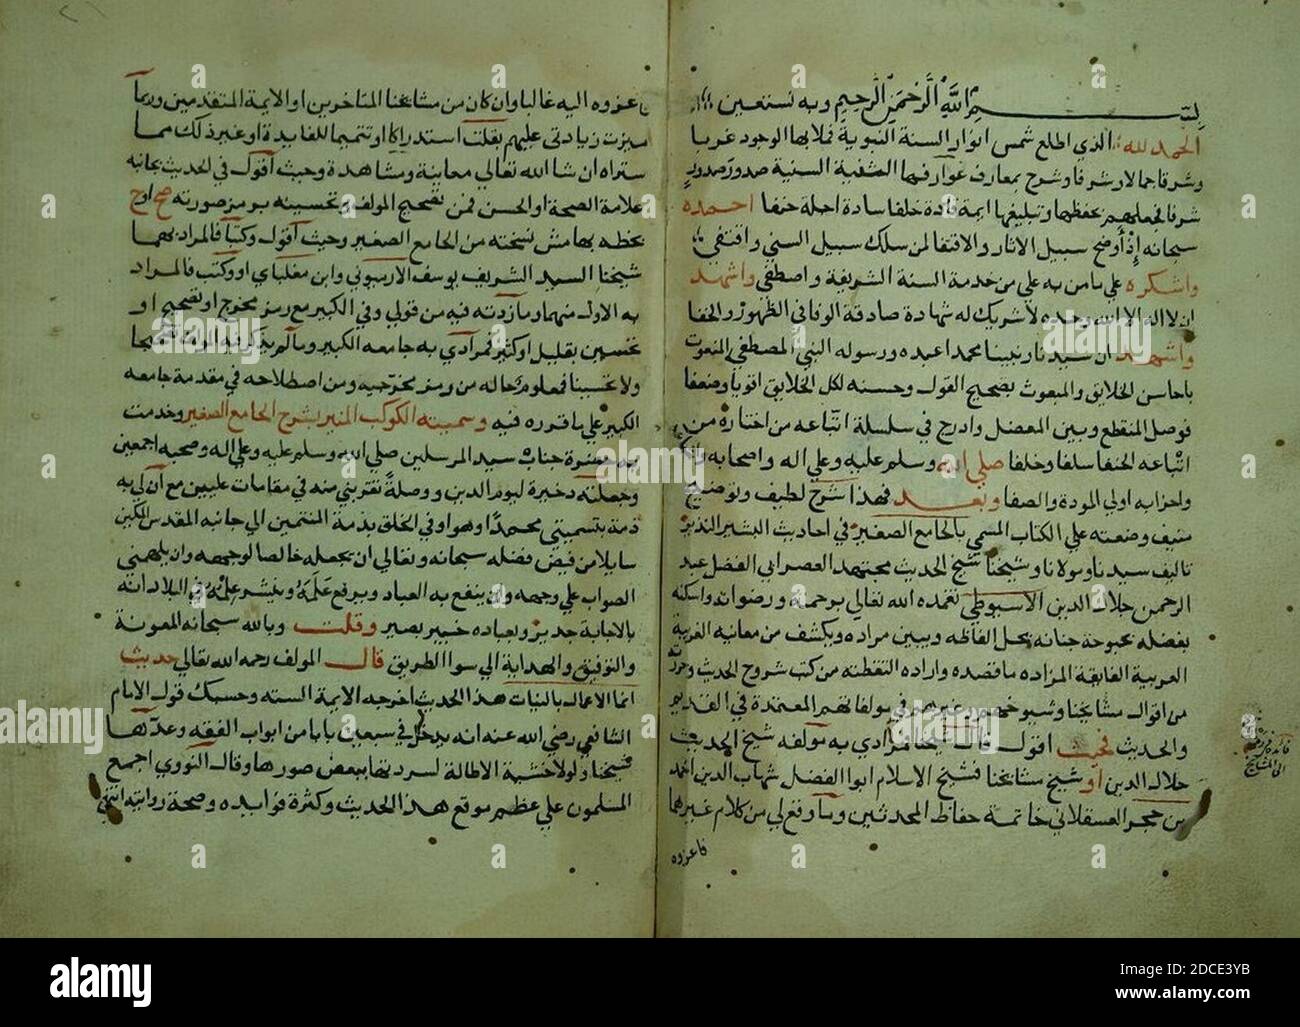 بسم الله الرحمن الرحيم وبه نستعين
الحمد لله الذي اطلع شمس انوار السنة النبوية فملا بها الوجود غربا
وشرقا جمالا وشرفا وشرح بمعارف عوارفها الحنفية السنية صدور صدور
شرفا فجعلهم بحفظها وتبليغها ايمة قادة خلفا سادة اجلة حنفا احمده
سبحانه إذ أوضح سبيل الاثار والاقتفا لمن سلك سبيل السنن واقتفي
واشكره علي ما من به علي من خدمة السنة الشريفة واصطفي واشهد
ان لا اله الا الله وحده لا شريك له شهادة صادقة الوفا في الظهور والخفا
واشهد ان سيدنا ونبينا محمدا عبده ورسوله النبي المصطفي المنعوت
باحاسن الخلايق والمبعوث بصحيح القول وحسنه لكل الخلايق اقويا وضعفا
فوصل المنقطع وبين المعضل وادرج في سلسلة اتباعه من اختاره من
اتباعه الحنفا سلفا وخلفا صلي الله وسلم عليه وعلي اله واصحابه
واحزابه اولي المودة والصفا وبعد فهذا شرح لطيف وتوضيح
منيف وضعته علي الكتاب المسمي بالجامع الصغير في احاديث البشير النذير
تاليف سيدنا ومولانا وشيخنا شيخ الحديث مجتهد العصر ابي الفضل عبد
الرحمن جلال الدين الاسيوطي تغمده الله تعالي برحمته ورضوانه واسكنه
بفضله بحبوحة جنانه يحل الفاظه ويبين مراده ويكشف من معانيه الغريبة
العربية الفايقة المزاده ما قصده واراده التقطته من كتب شروح الحديث
من اقوال مشايخنا وشيوخهم وغيرهم في مولفاتهم المعتمدة في القديم
والحديث فحيث اقول قال شيخنا فمرادي به مولفه شيخ الحديث
جلال الدين او شيخ مشايخنا فشيخ الاسلام ابوا الفضل شهاب الدين احمد
بن حجر العسقلاني خاتمة حفاظ المحدثين وما وقع لي من كلام غيرهما
فاعزوه
فاعزوه اليه غالبا وان كان من مشايخنا المتاخرين او الايمة المتقدمين وربما
ميزت زيادتي عليهم بقلت استدراكا او تتميما للفايدة او غير ذلك مما
ستراه ان شا الله تعالي معاينة ومشاهدة وحيث أقول في الحديث بجانبه
علامة الصحة او الحسن فمن تصحيح المولف وتحسينه برمز صورته صح او ح
بخطه بهامش نسخته من الجامع الصغير وحيث أقول وكتبا فالمراد بهما
شيخنا السيد الشريف يوسف الارميوني وابن مغلباي او وكتب فالمراد
به الاول منهما وما زدته فيه من قولي وفي الكبير مع رمز مخرج او تصحيح او
تحسين بقليل او كثير فمرادي به جامعه الكبير وما لم يذكر فيه المولف تصحيحا
ولا تحسينا فمعلوم حاله من رمز مخرجيه ومن اصطلاحه في مقدمة جامعه
الكبير علي ما قرره فيه وسميته الكوكب المنير بشرح الجامع الصغير وخدمت
به حضرة جناب سيد المرسلين صلي الله وسلم عليه وعلي اله وصحبه اجمعين
وجعلته ذخيرة ليوم الدين ووصلة تقربني منه في مقامات عليين مع أن لي به
ذمة بتسميتي محمدا وهو اوفي الخلق بذمة المنتمين الي جانبه المقدس المكين
سايلا من فيض فضله سبحانه وتعالي ان يجعله خالصا لوجهه وان يلهمني
الصواب علي وجهه وان ينفع به العباد ويرفع علمه وينشر علمه في البلاد انه
بالاجابة جدير وبعباده خبير بصير وقلت وبالله سبحانه المعونة
والتوفيق والهداية الي سوا الطريق قال المولف رحمه الله تعالي حديث
انما الاعمال بالنيات هذا الحديث اخرجه الايمة السته وحسبك قول الامام
الشافعي رضي الله عنه انه يدخل في سبعين بابا من ابواب الفقه وعدها
شيخنا ولولا خشية الاطالة لسردتها ببعض صورها وقال النووي اجمع
المسلمون علي عظم موقع هذا الحديث وكثرة فوايده وصحة روايته انتهي
alamy
Image ID: 2DCE3YB
www.alamy.com